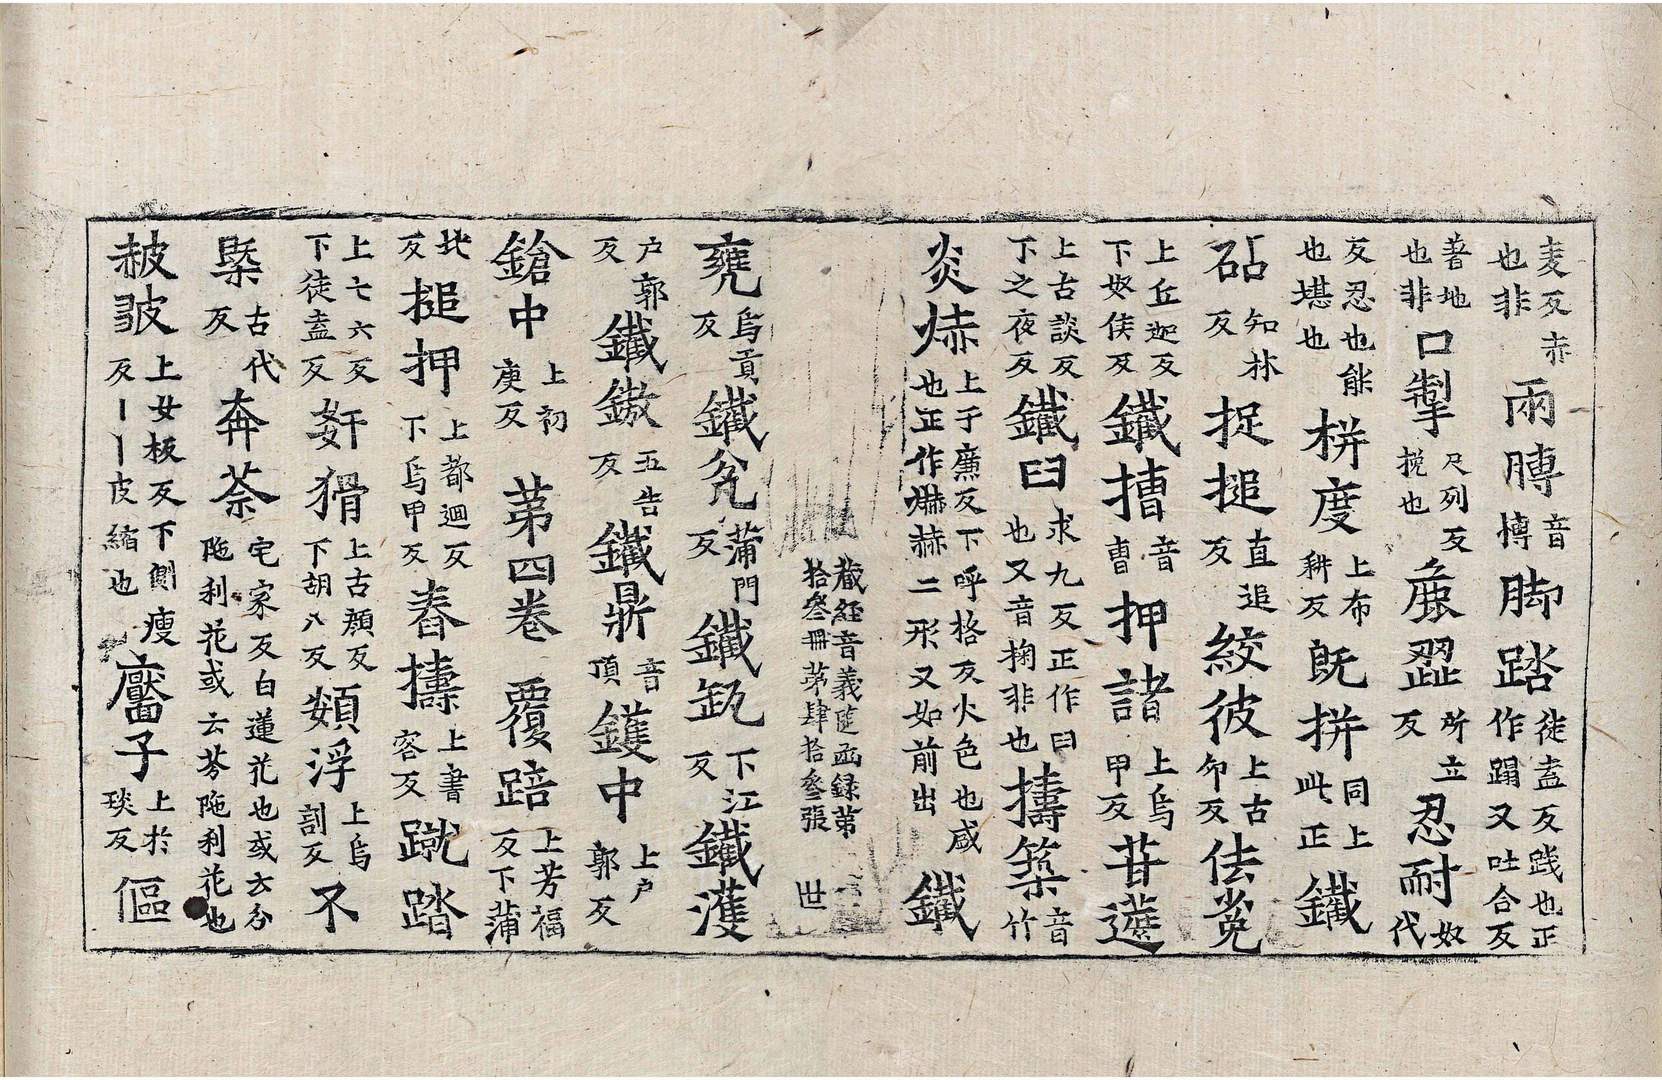 麦反赤也非兩膊音博脚踏徒盍反践也正作蹋又吐合反
著地也非口掣尺列反挽也麁澀所立反忍耐奴代
反忍也能也堪也栟度上布耕反既拼同上此正鐵
砧知林反捉搥直追反絞彼上古夘反佉㝹
上丘迦反下奴侯反鐵摣音曹押諸上烏甲反苷蔗
上古談反下之夜反鐵臼求九反正作臼也又音掬非也擣築音竹
炎焃上子廉反下呼格反火色也咸也正作爀赫二形又如前出鐵
藏經音義隨函録第拾叁冊苐肆拾叁張 世
甕烏貢反鐵瓫蒲門反鐵瓨下江反鐵鑊
户郭反鐵鏊五告反鐵鼎音頂鑊中上户郭反
鎗中上初庚反 苐四卷 覆踣上芳福反下蒲
北反搥押上都迴反下烏甲反舂擣上書容反蹴踏
上七六反下徒盍反姧猾上古顔反下胡八反頞浮上烏割反不
槩古代反奔荼宅家反白蓮花也或云分陁利花或云芬陁利花也
赧皺上女板反下側瘦反丨丨皮縮也黶子上於琰反傴